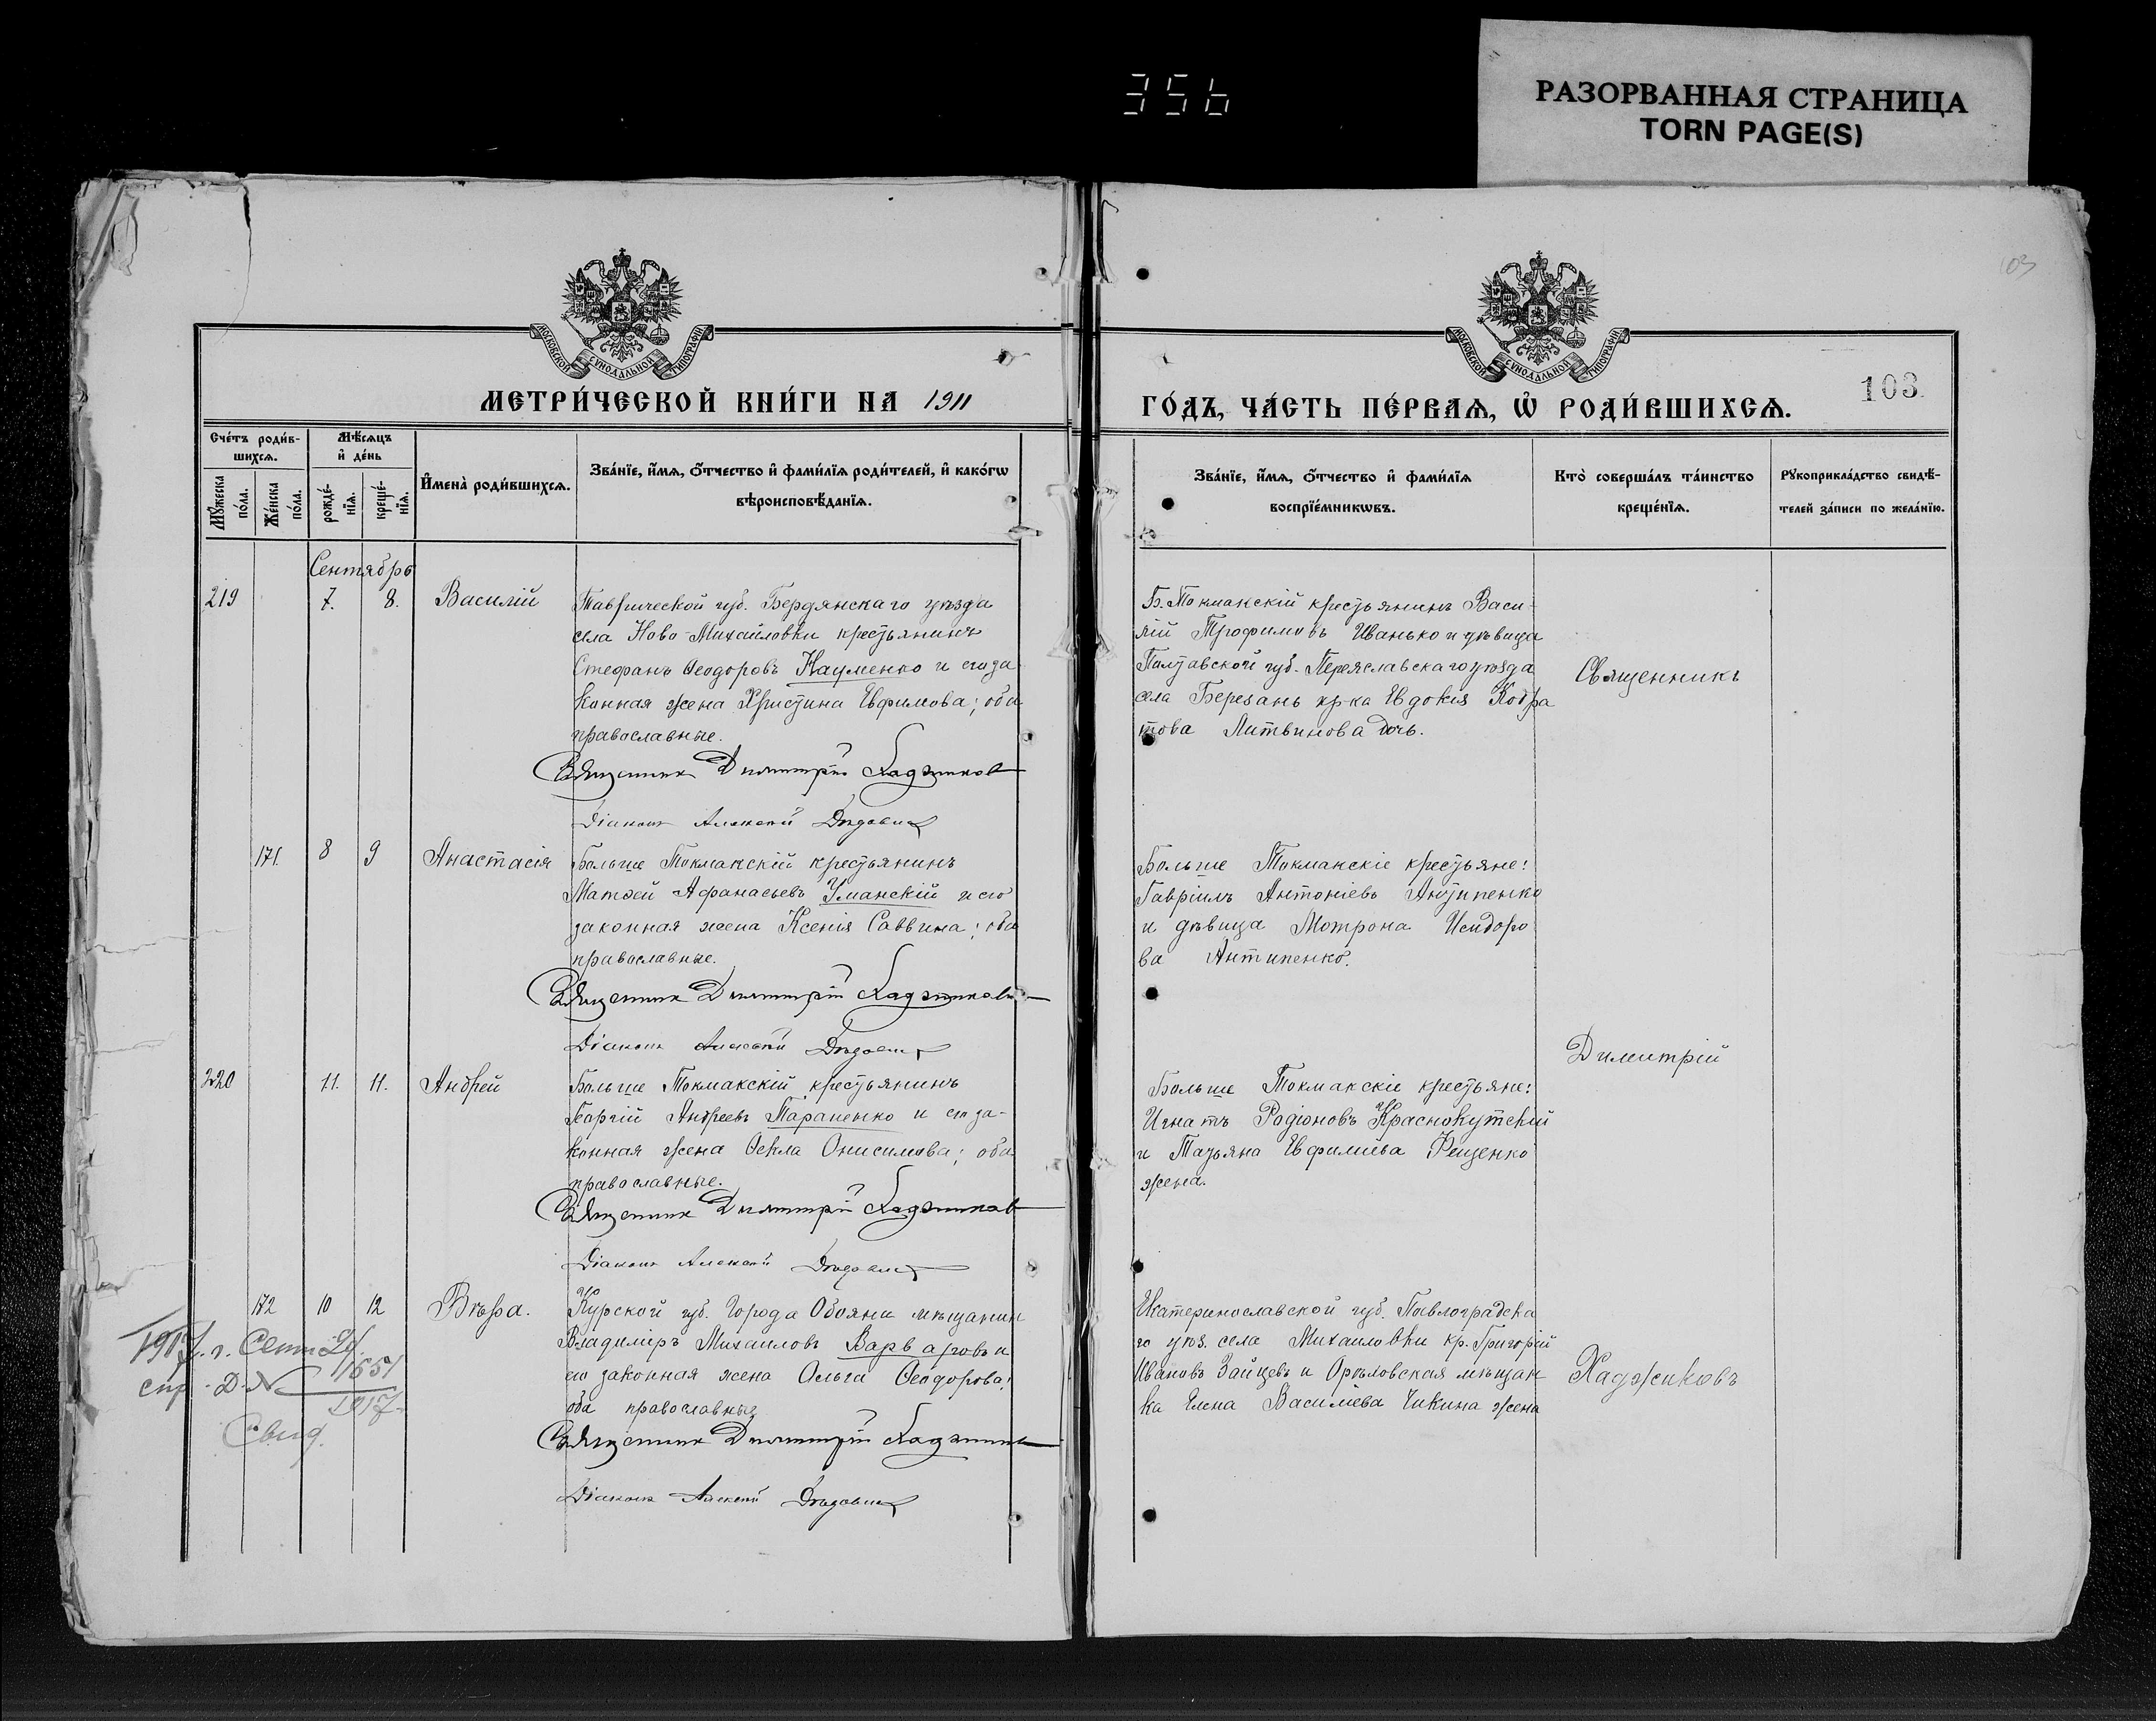 356
РАЗОРВАННАЯ СТРАНИЦА
TORN PAGE(S)
103
МОСКОВСКОЙ СУНОДАЛЬНОЙ ТИПОГРАФІИ
МОСКОВСКОЙ СУНОДАЛЬНОЙ ТИПОГРАФІИ
МЕТРИ́ЧЕСКОЙ КНИ́ГИ НА 1911
ГО́ДЪ, ЧА́СТЬ ПЕ́РВАѦ, Ѽ РОДИ́ВШИХСѦ.
103.
Сче́тъ роди́в-
шихсѧ.
Мѣ́сѧцъ
и҆ де́нь
Мꙋ́жеска
по́ла.
Же́нска
по́ла.
рожде́-
нїѧ.
креще́-
нїѧ.
И҆мена̀ роди́вшихсѧ.
Зва́нїе, и҆́мѧ, ѻ҆́тчество и҆ фами́лїѧ роди́телей, и҆ како́гѡ
вѣроисповѣ́данїѧ.
Зва́нїе, и҆́мѧ, ѻ҆́тчество и҆ фами́лїѧ
воспрїе́мникѡвъ.
Кто̀ соверша́лъ та́инство
креще́нїѧ.
Рꙋкоприкла́дство свидѣ́-
телей за́писи по жела́нїю.
Сентябрь
219 7. 8. Василій
Таврической губ. Бердянскаго уѣзда
села Ново-Михайловки крестьянинъ
Стефанъ Ѳеодоровъ Науменко и его за
конная жена Христина Евфимова; оба
православные.
Священник Димитрій Хаджиков
Діаконъ Алексей
Б. Токмакскій крестьянинъ Васи-
лій Трофимовъ Иванько и дѣвица
Полтавской губ. Переяславскаго уѣзда
села Березань кр-ка Евдокія Кодра
това Литвинова дочь.
Священникъ
171. 8 9 Анастасія
Больше Токмакскій крестьянинъ
Матѳей Афанасьевъ Уманскій и его
законная жена Ксенія Саввина; оба
православные.
Священник Димитрій Хаджиковъ
Діаконъ Алексей
Больше Токмакскіе крестьяне:
Гавріилъ Антоніевъ Антипенко
и дѣвица Мотрона Исидоро
ва Антипенко.
Димитрій
220 11. 11. Андрей
Больше Токмакскій крестьянинъ
Георгій Андреевъ Тараненко и его за-
конная жена Ѳекла Онисимова; оба
православные.
Священник Димитрій Хаджиков
Діаконъ Алексей
Больше Токмакскіе крестьяне:
Игнатъ Родіоновъ Краснокутскій
и Татьяна Евфиміева Фещенко
жена.
172 10 12 Вѣра.
Курской губ. города Обояни мѣщанин
Владимiръ Михаиловъ Варваровъ и
его законная жена Ольга Ѳеодорова;
оба православные
Священник Димитрій Хаджиков
Діаконъ Алексей
Екатеринославской губ. Павлоградска
го уѣз. села Михаиловки кр. Григорій
Ивановъ Зайцевъ и Орловская мѣщан
ка Елена Василіева Чикина жена
Хаджиковъ
1917. г. Сент 21.
спр. Д. № 1651
1917
Свид.